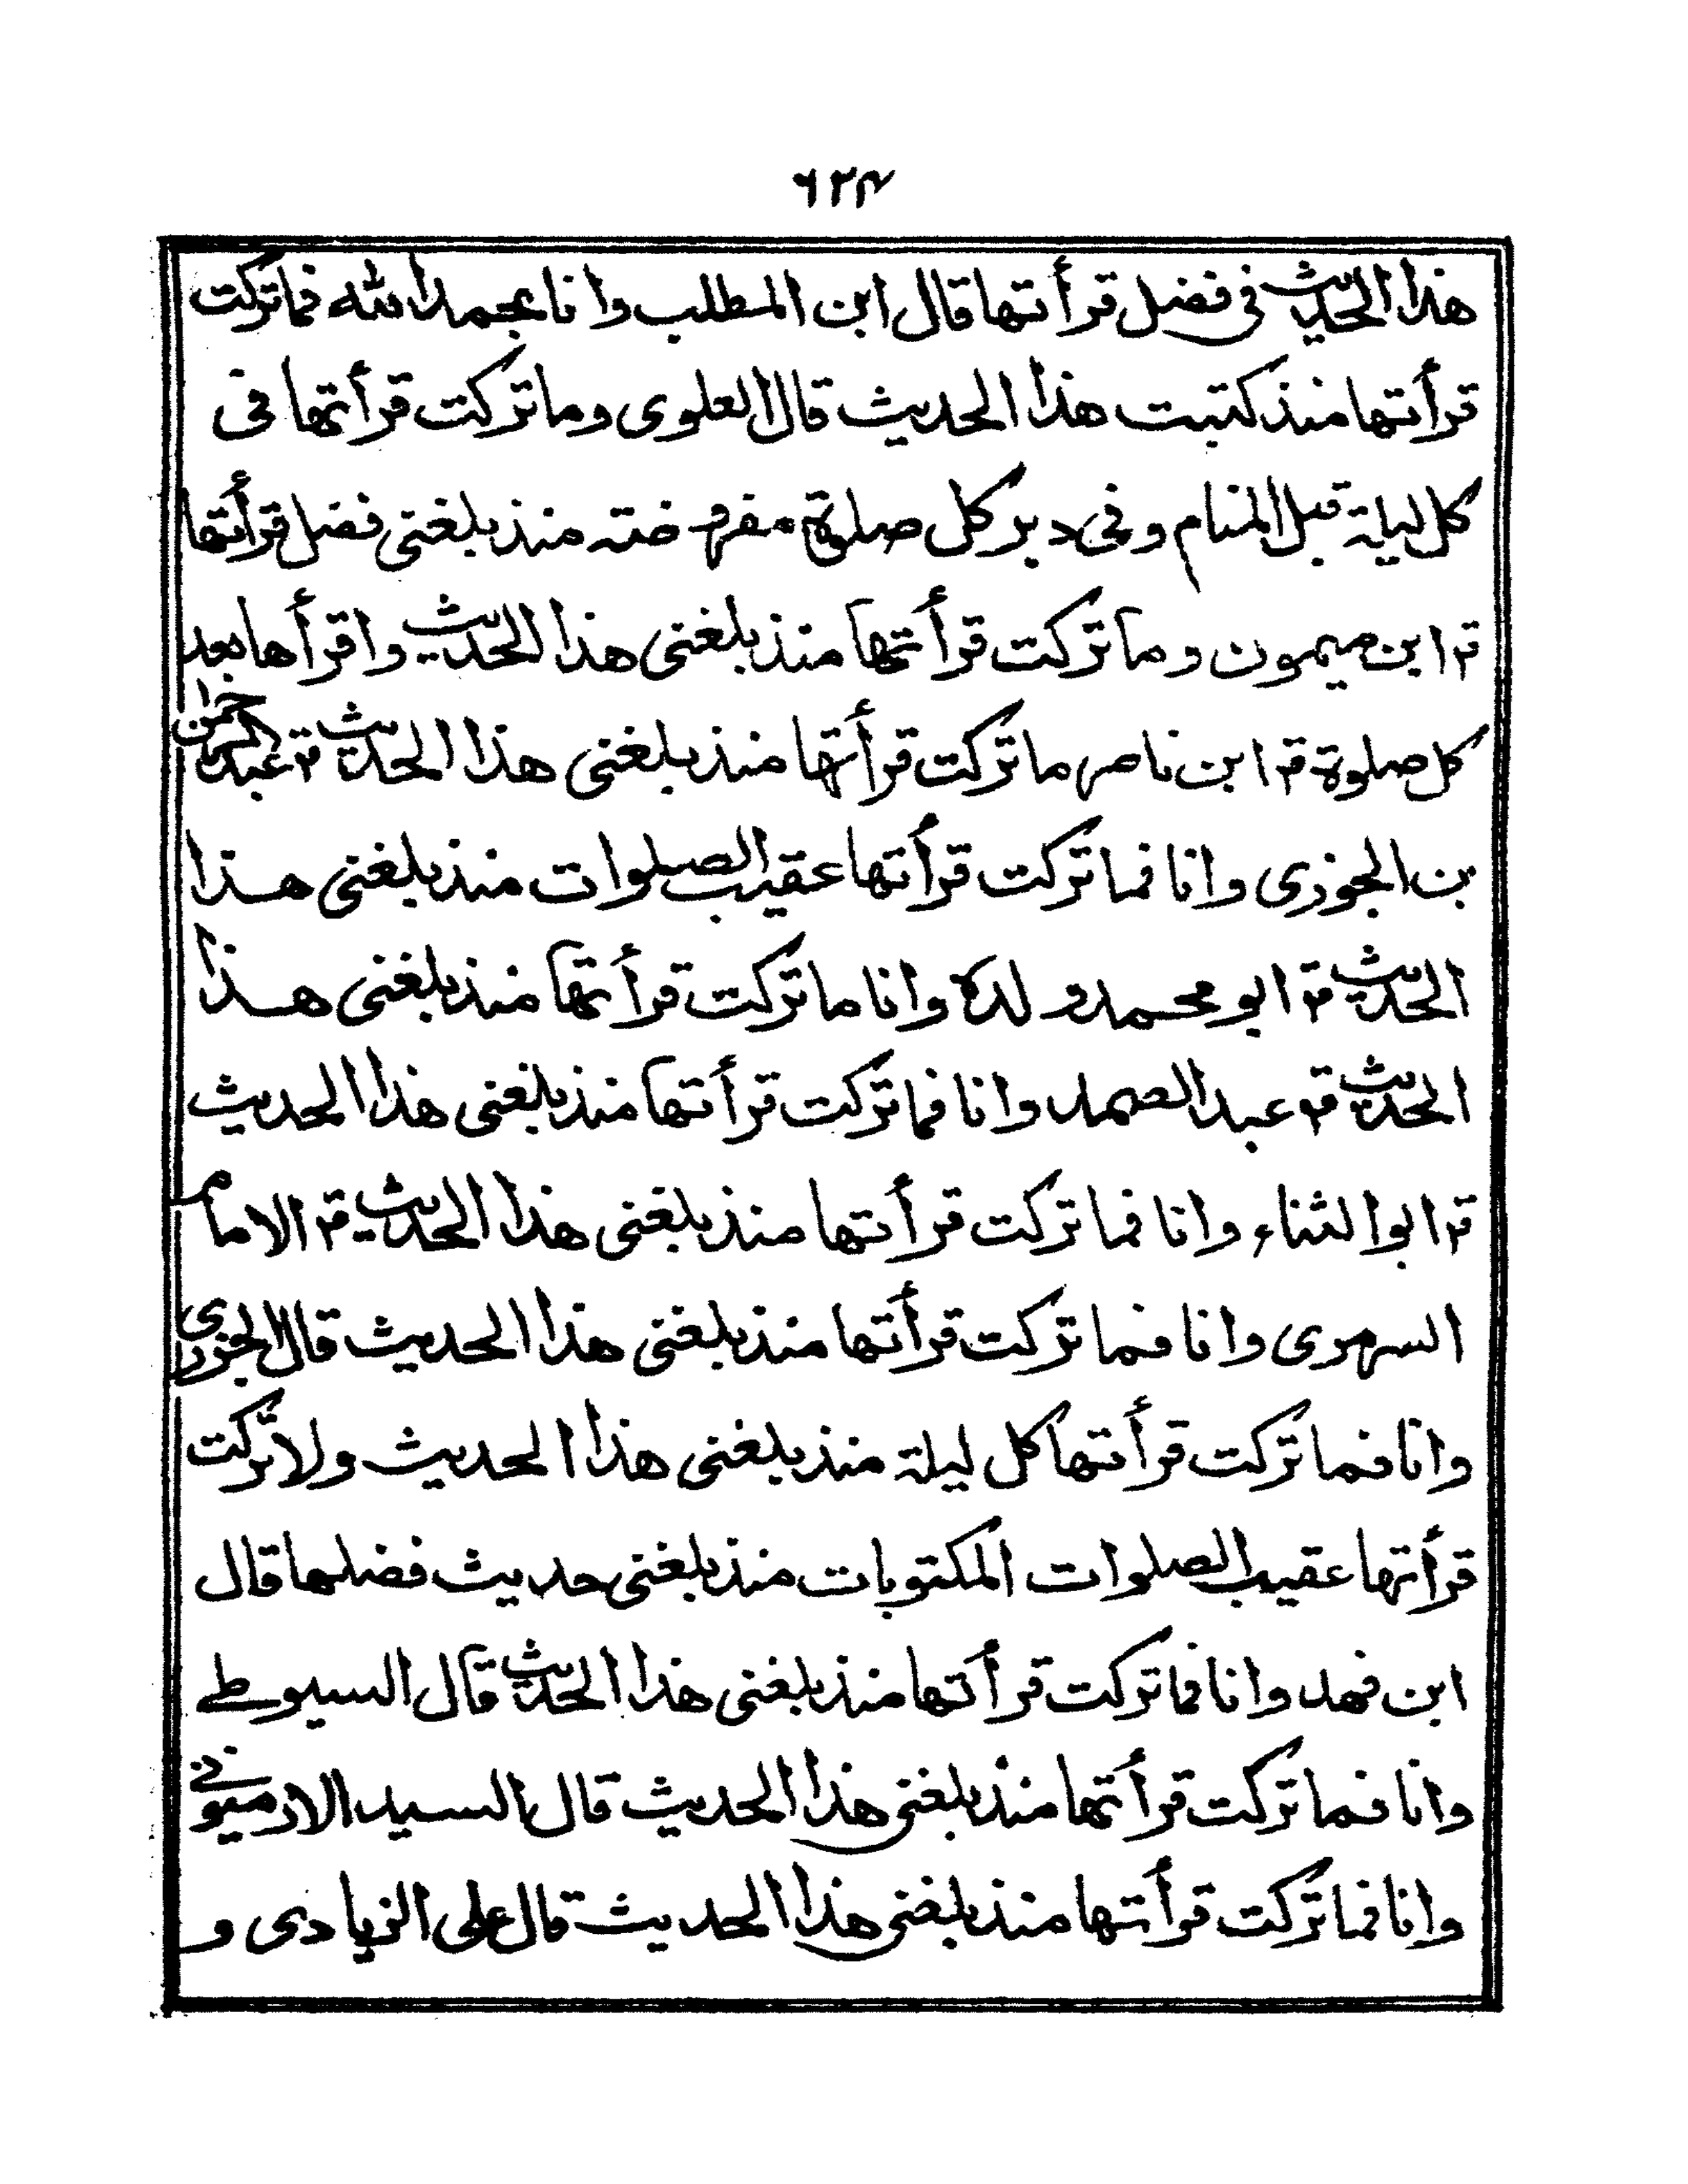 ٦٢٤
هذا الحديث في فضل قرأتها قال ابن المطلب وانا بحمد الله فما تركت
قرأتها منذ كتبت هذا الحديث قال العلوى وما تركت قرأتها فى
كل ليلة قبل المنام وفى دبر كل صلوة مفروضته منذ بلغنى فضل قرأتها
قم ابن ميمون وما تركت قرأتها منذ بلغنى هذا الحديث واقرأها بعد
كل صلوة قم ابن ناصر ما تركت قرأتها منذ بلغنى هذا الحديث قم عبد الرحمن
بن الجوزى وانا فما تركت قرأتها عقيب الصلوات منذ بلغنى هذا
الحديث قم ابو محمد ولده وانا ما تركت قرأتها منذ بلغنى هذا
الحديث قم عبد الصمد وانا فما تركت قرأتها منذ بلغنى هذا الحديث
قم ابو الثناء وانا فما تركت قرأتها منذ بلغنى هذا الحديث قم الامام
السرمرى وانا فما تركت قرأتها منذ بلغنى هذا الحديث قال الجزرى
وانا فما تركت قرأتها كل ليلة منذ بلغنى هذا الحديث ولا تركت
قرأتها عقيب الصلوات المكتوبات منذ بلغنى حديث فضلها قال
ابن فهد وانا فما تركت قرأتها منذ بلغنى هذا الحديث قال السيوطى
وانا فما تركت قرأتها منذ بلغنى هذا الحديث قال السيد الارميوفى
وانا فما تركت قرأتها منذ بلغنى هذا الحديث قال على الزيادى و